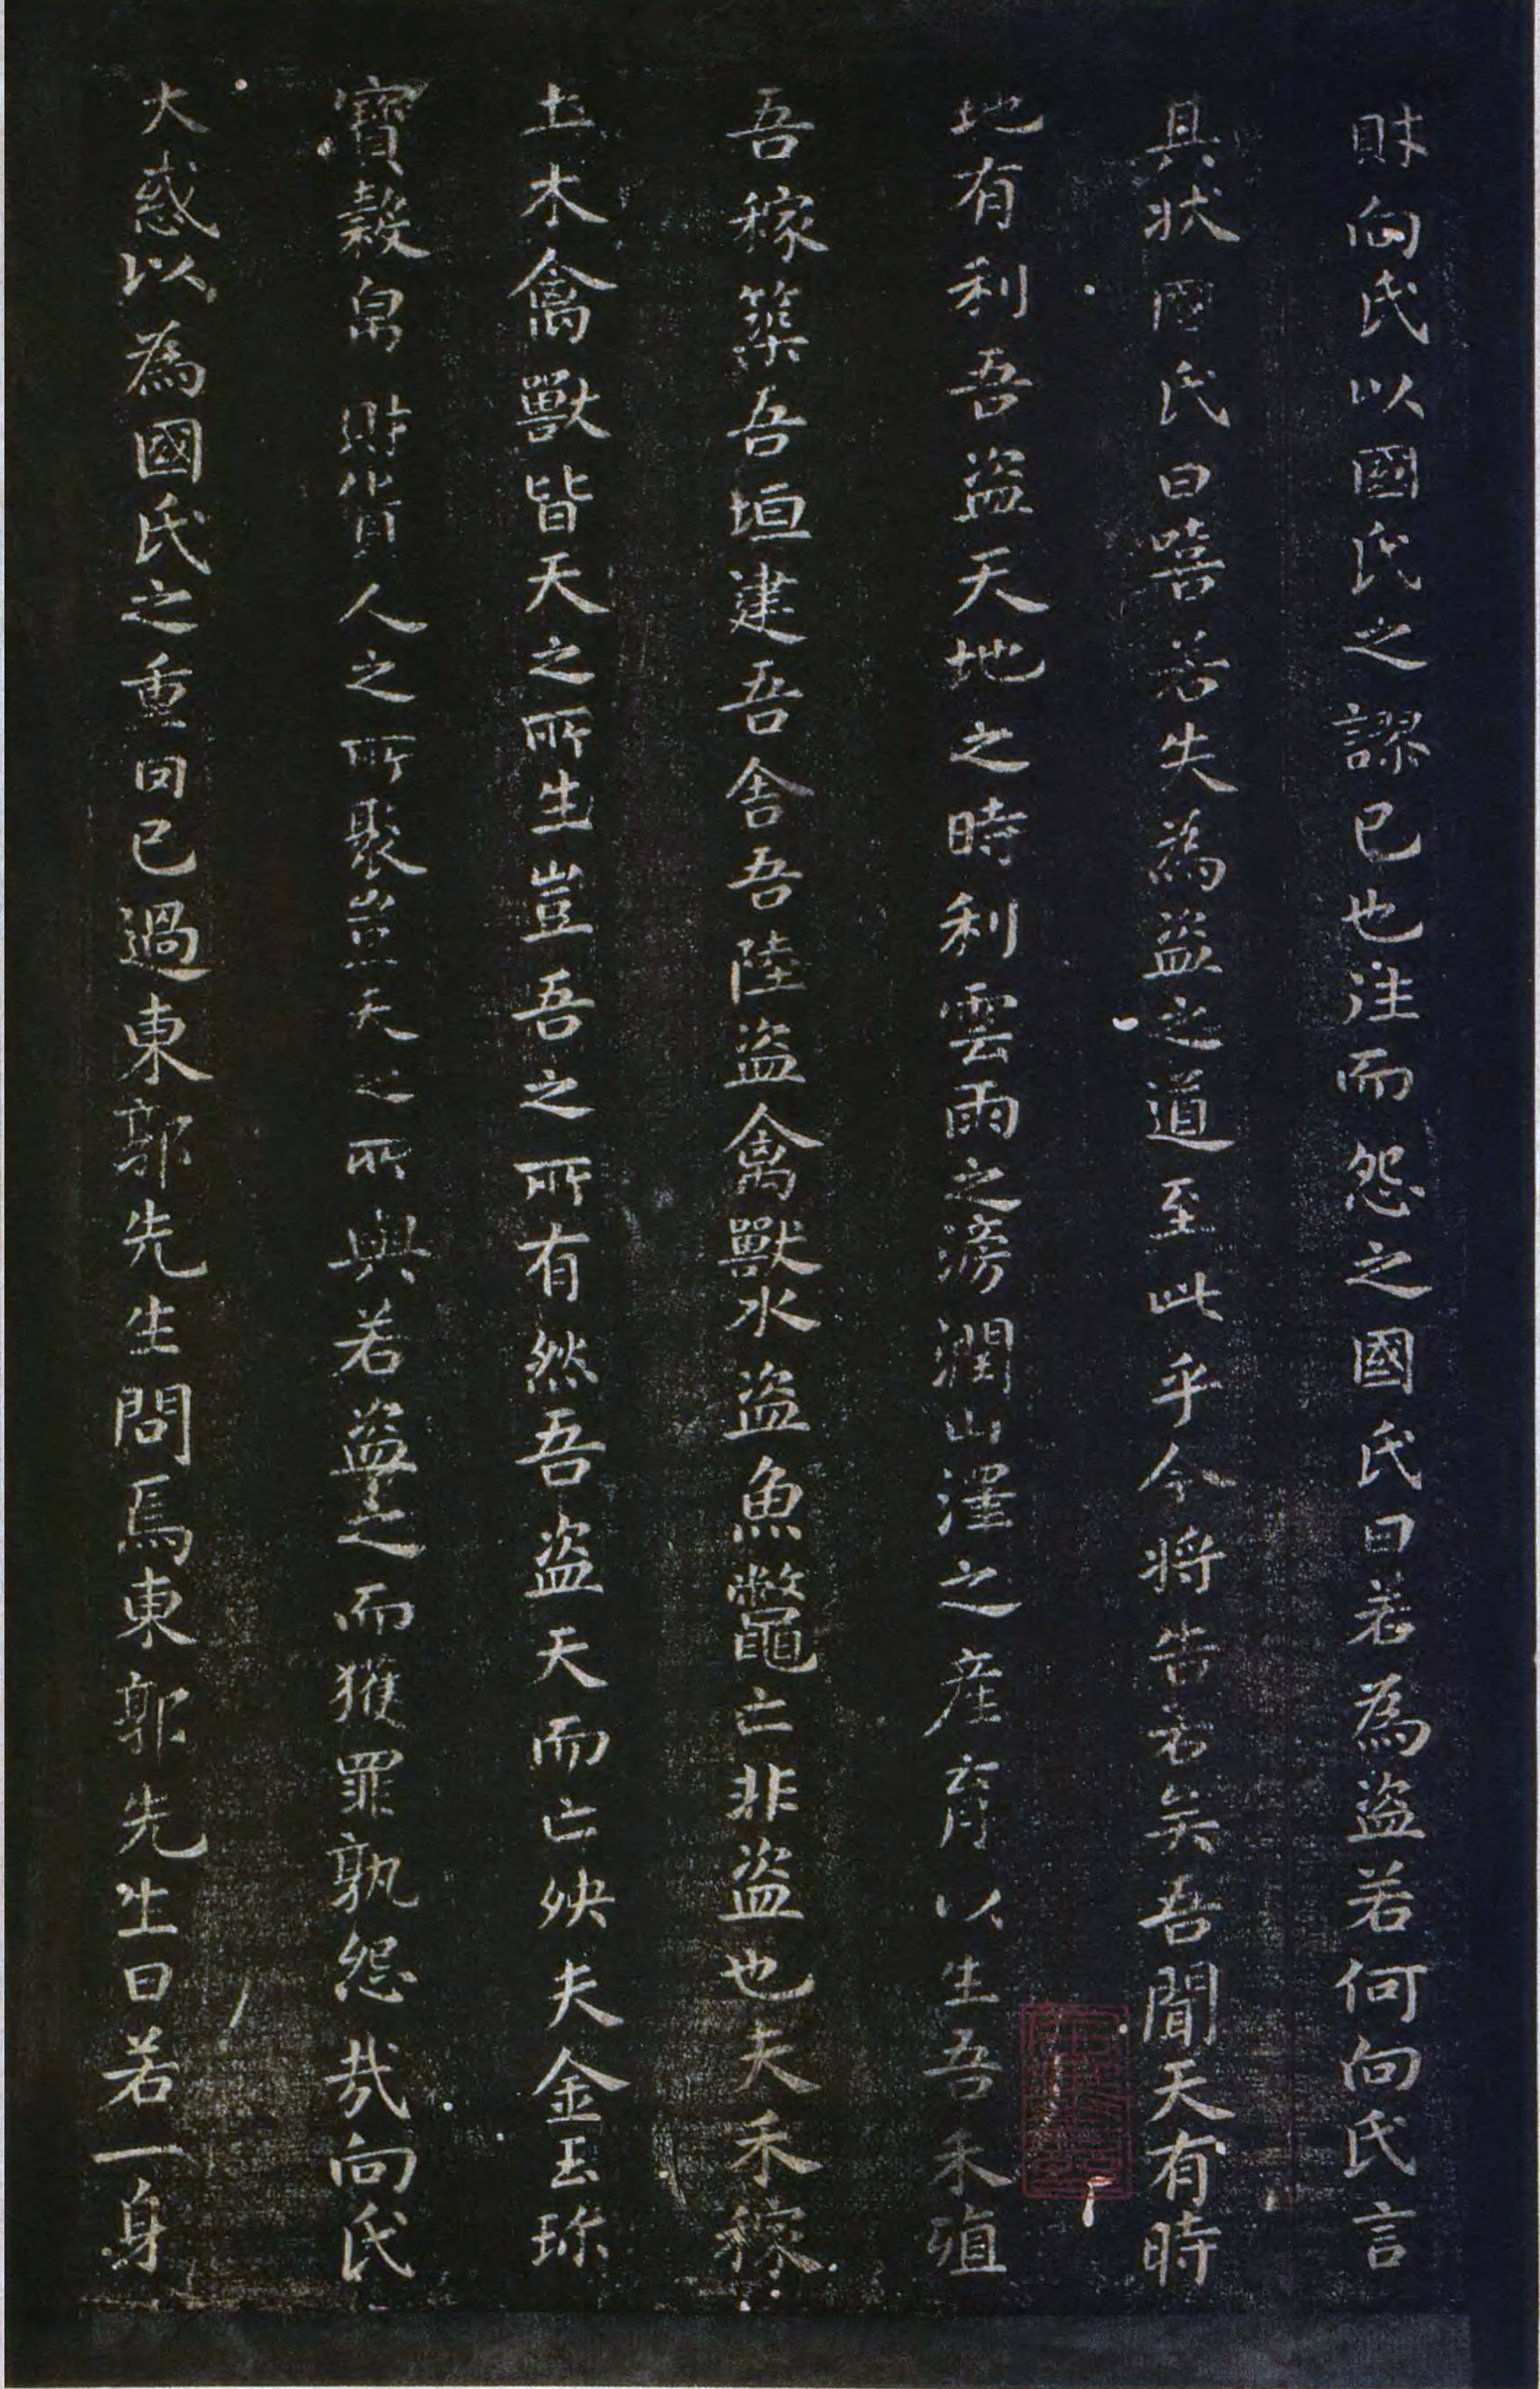 財向氏以國氏之謬己也往而怨之國氏曰若為盜若何向氏言
其狀國氏曰嘻若失為盜之道至此乎今將告若矣吾聞天有時
地有利吾盜天地之時利雲雨之滂潤山澤之產育以生吾禾殖
吾稼築吾垣建吾舍吾陸盜禽獸水盜魚鼈亡非盜也夫禾稼
土木禽獸皆天之所生豈吾之所有然吾盜天而亡殃夫金玉珎
寶穀帛財貨人之所聚豈天之所與若盜之而獲罪孰怨哉向氏
大惑以為國氏之重罔己過東郭先生問焉東郭先生曰若一身